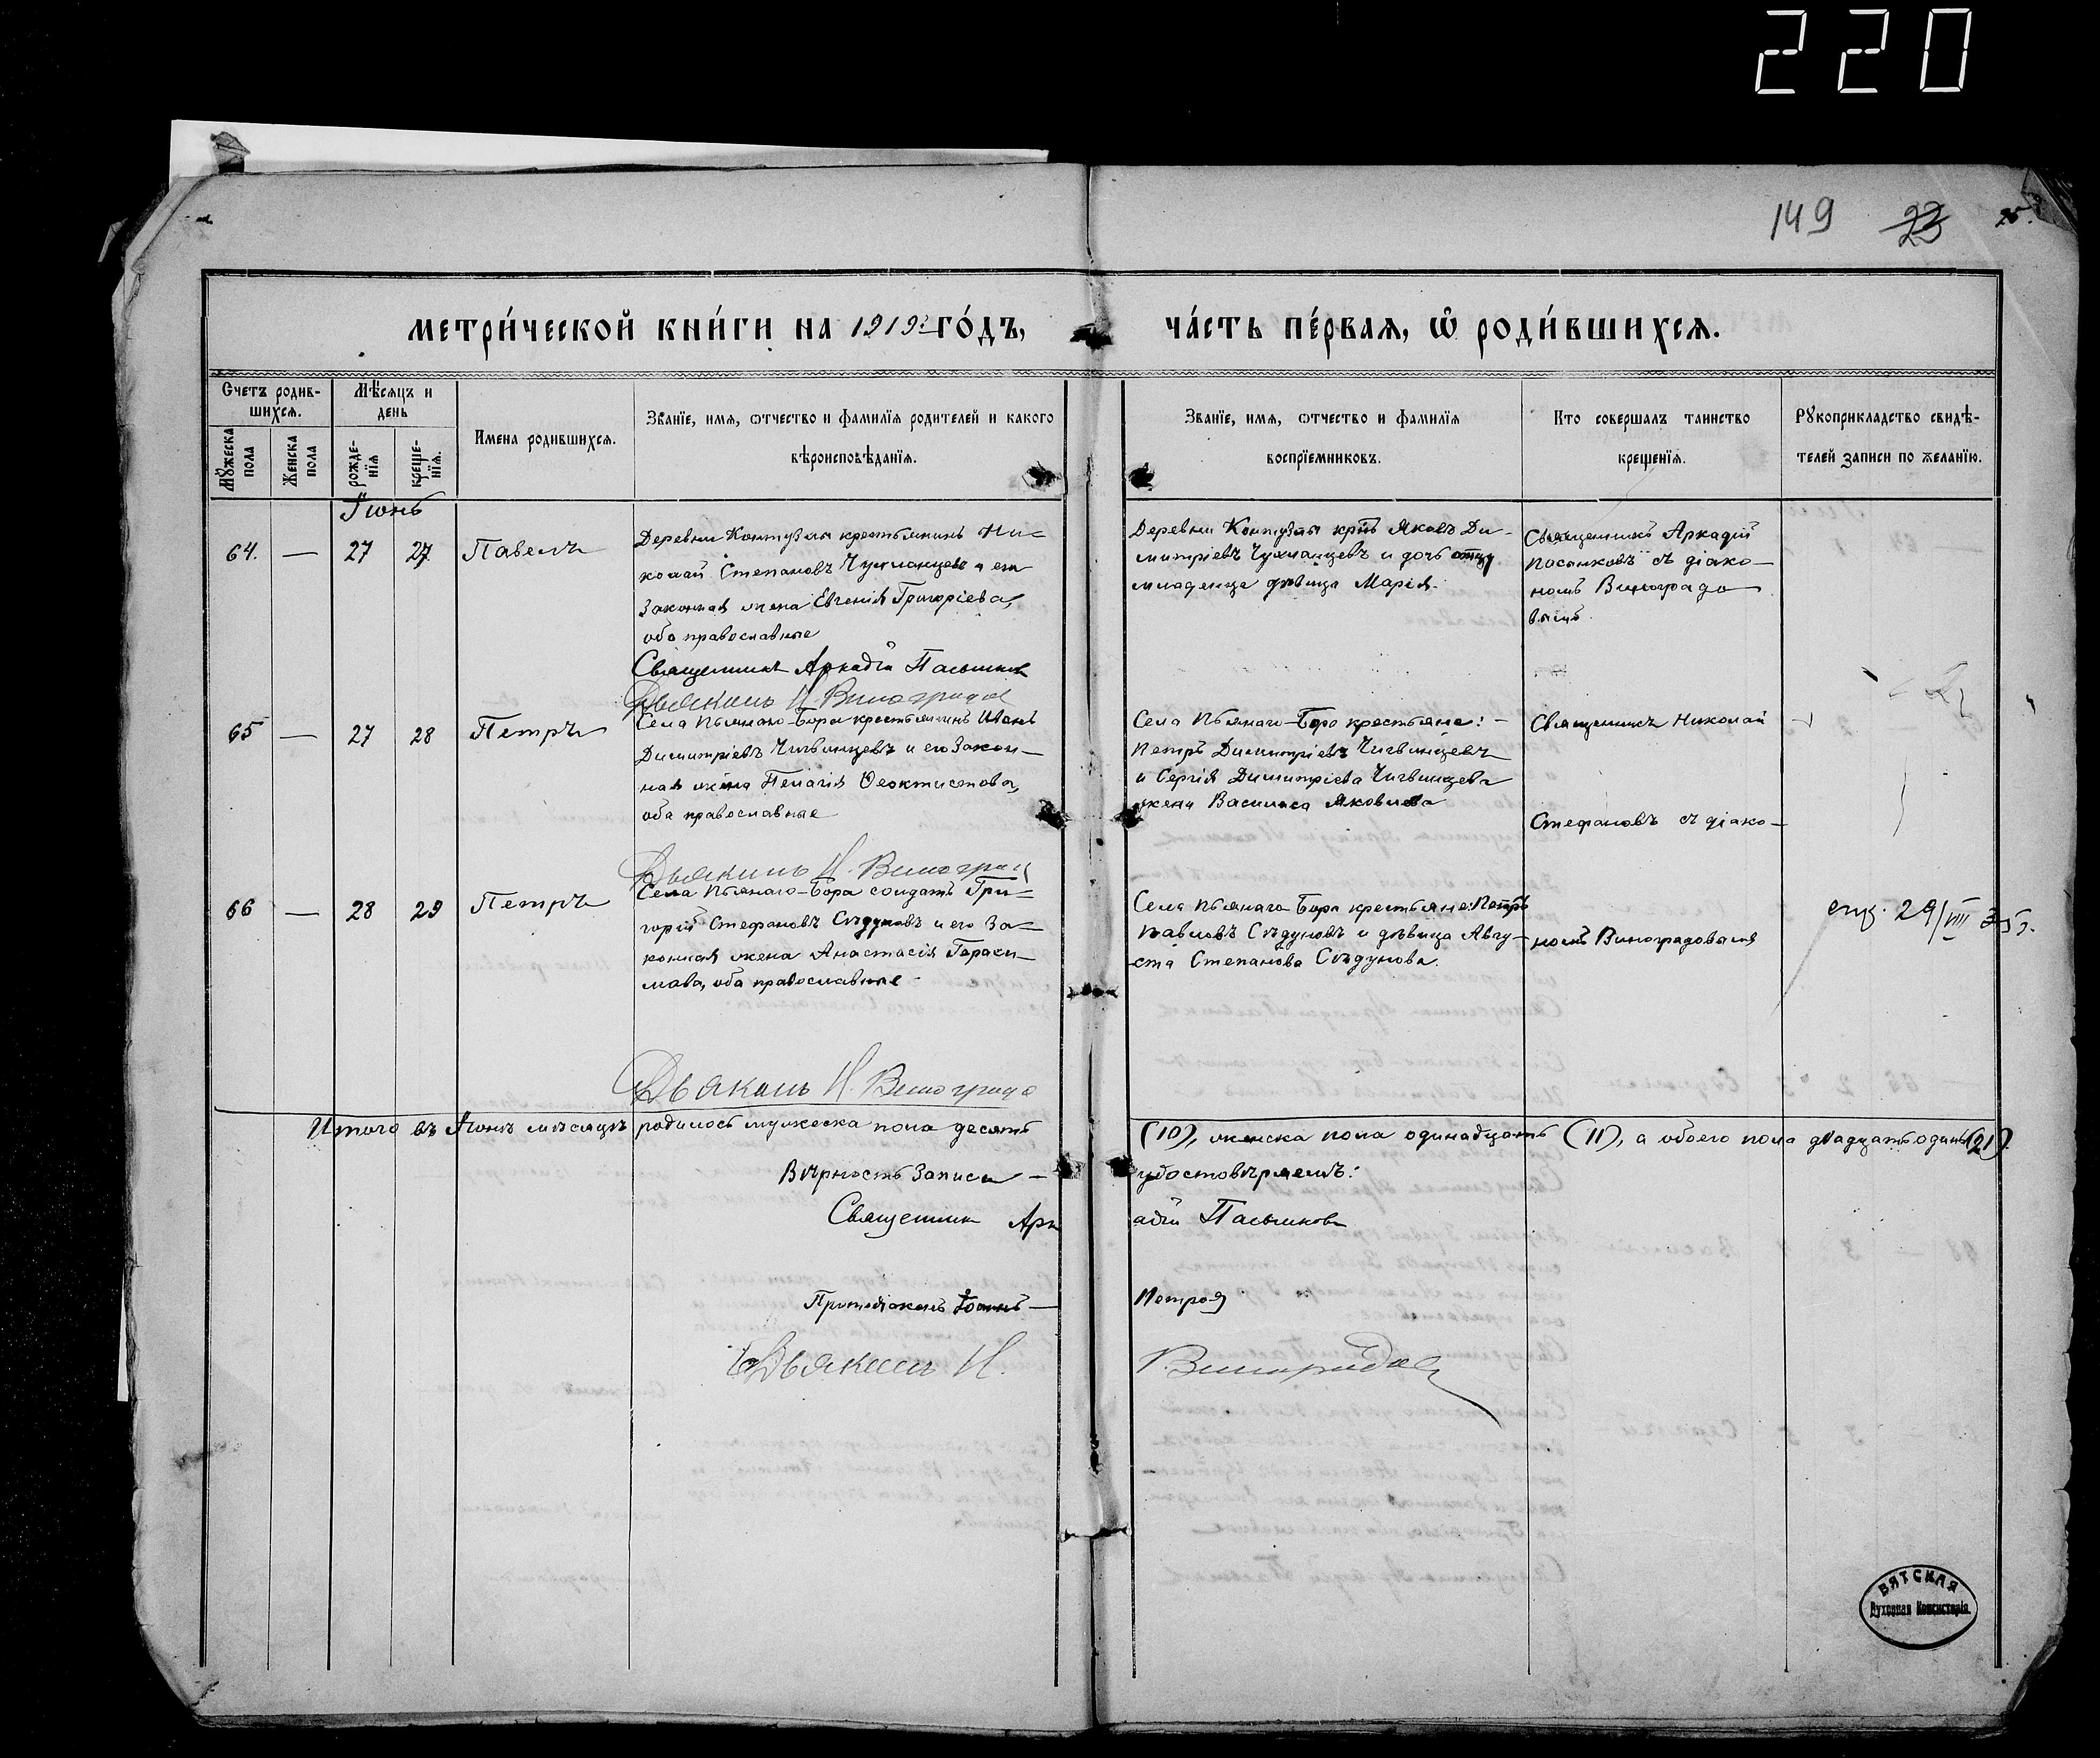 220
149 23 25.
МЕТРИ́ЧЕСКОЙ КНИ́ГИ НА 1919 ГО́ДЪ,
ЧА́СТЬ ПЕ́РВАЯ, Ѿ РОДИ́ВШИХСЯ.
Счетъ родив-
шихся.
Мꙋжеска пола
Женска пола
Мѣсяцъ и
день
рожде-
нїя
креще-
нїя.
Имена родившихся.
Званїе, имя, ѿтчество и фамилїя родителей и какого
вѣроисповѣданїя.
Званїе, имя, ѿтчество и фамилїя
воспрїемниковъ.
Кто совершалъ таинство
крещенїя.
Рꙋкоприкладство свидѣ-
телей записи по желанїю.
Іюнь
64. — 27 27. Павелъ
Деревни Контузлы крестьянинъ Ни=
колай Степановъ Чухланцевъ и его
законная жена Евгенія Григоріева,
оба православные
Священникъ Аркадій
Дьяконъ Н. Виноградов
Деревни Контузлы крнъ Яковъ Ди-
митріевъ Чухланцевъ и дочь отцу
младенца дѣвица Марія.
Священникъ Аркадій
съ діако-
номъ Виноградо
вымъ.
65 — 27 28 Петръ
Села Пьянаго-Бора крестьянинъ Иванъ
Димитріевъ Чигвинцевъ и его закон-
ная жена Пелагія Ѳеоктистова,
оба православные
Дьяконъ Н. Виноград
Села Пьянаго-Бора крестьяне: -
Петръ Димитріевъ Чигвинцевъ
и Сергія Димитріева Чигвинцева
жена Василиса Яковлева
Священникъ Николай
Стефановъ съ діако-
66 — 28 29 Петръ
Села Пьянаго-Бора солдатъ Гри=
горій Стефановъ Сѣдуновъ и его за=
конная жена Анастасія Гераси-
мова, оба православные -
Дьяконъ Н. Виноградо
Села Пьянаго Бора крестьяне: Петръ
Павловъ Сѣдуновъ и дѣвица Авгу-
ста Степанова Сѣдунова.
номъ Виноградовымъ
29/VIII 35 г.
Итого въ Іюнѣ мѣсяцѣ родилось мужеска пола десять
(10), женска пола одинадцать (11), а обоего пола двадцать одинъ (21).
Вѣрность записи —
удостовѣряемъ:
Священник Арк
адій
Протодіаконъ Іоаннъ —
Петров
Дьяконъ Н.
Виноградов
ВЯТСКАЯ
Духовная Консисторія